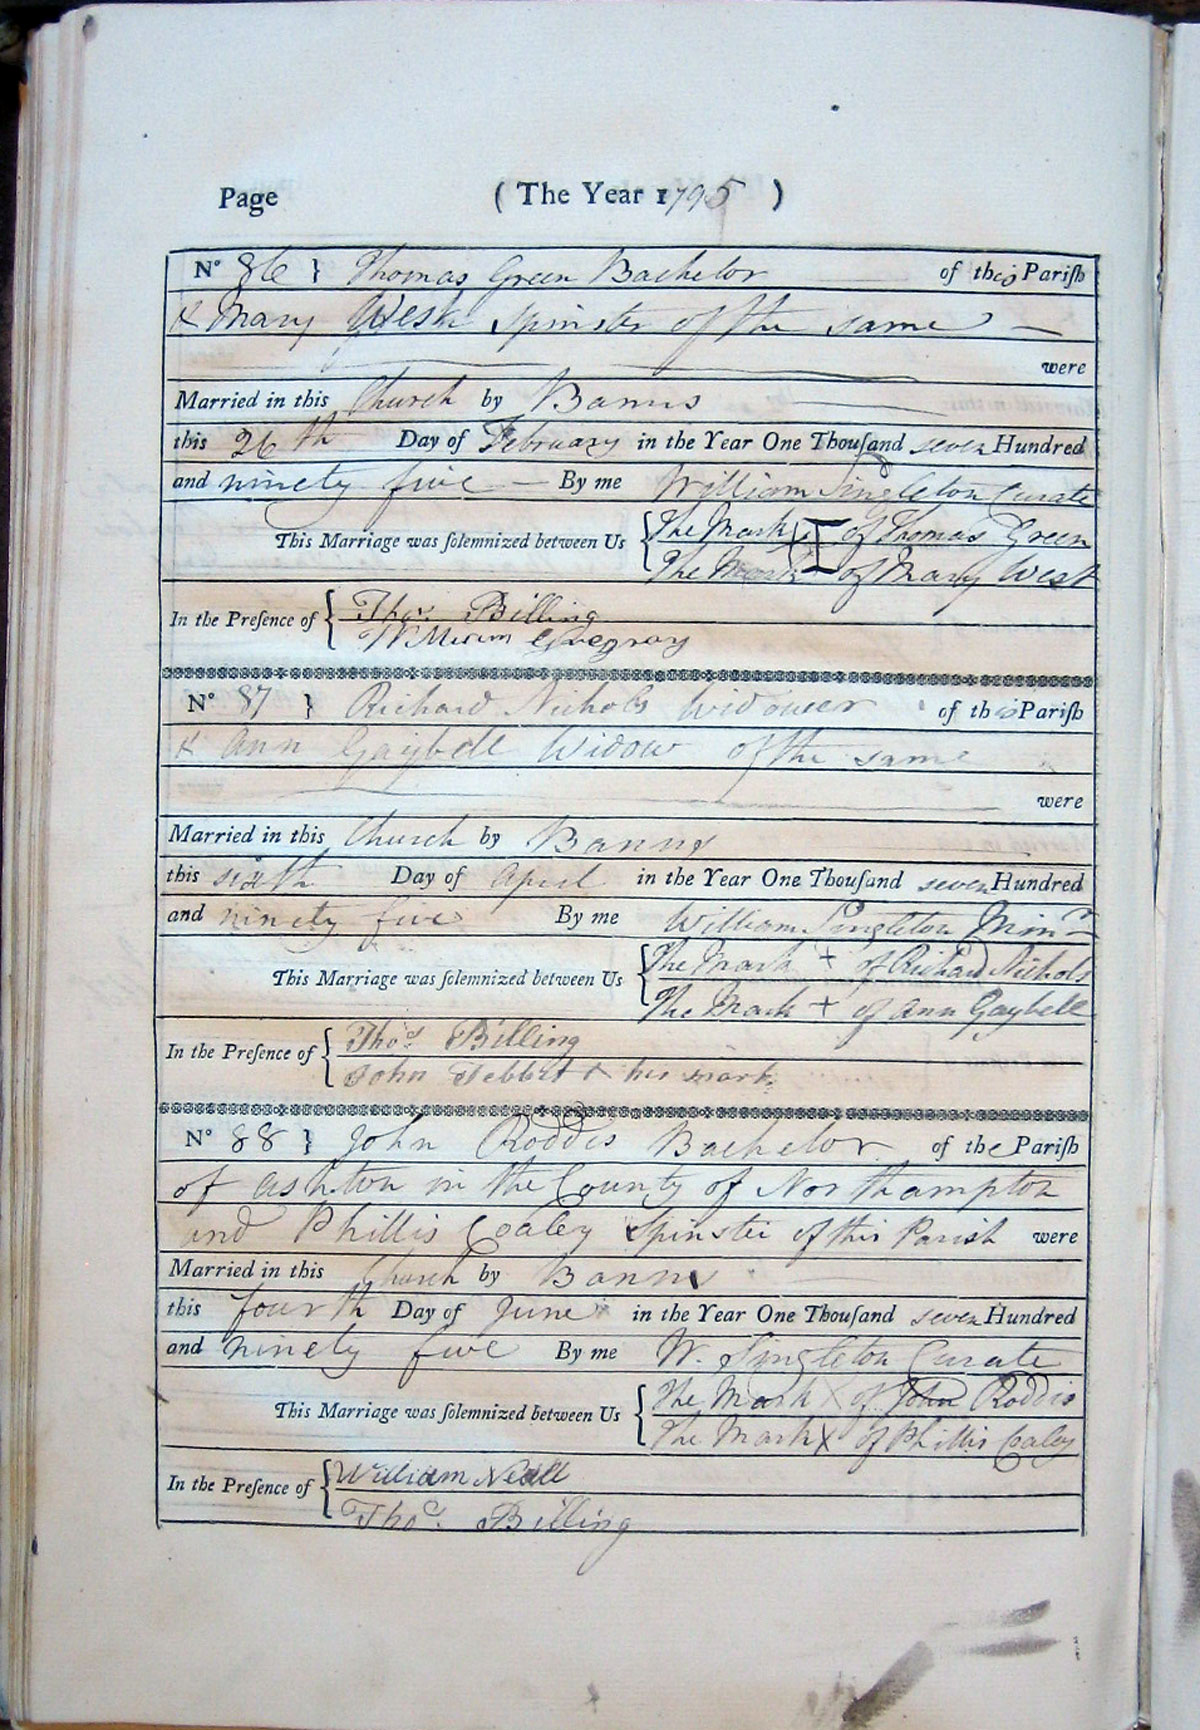 Page (The Year 1795)
No 86 } Thomas Green Bachelor of this Pariſh
& Mary West Spinster of the same
were
Married in this Church by Banns
this 26th Day of February in the Year One Thouſand seven Hundred
and ninety five By me William Singleton Curate
This Marriage was ſolemnized between Us { The Mark of Thomas Green
The Mark of Mary West
In the Preſence of { Thos. Billing
No 87 } Richard Nichols Widower of this Pariſh
& Ann Gaybell Widow of the same
were
Married in this Church by Banns
this sixth Day of April in the Year One Thouſand seven Hundred
and ninety five By me William Singleton Minr
This Marriage was ſolemnized between Us { The Mark + of Richard Nichols
The Mark + of Ann Gaybell
In the Preſence of { Thos. Billing
John Tebbut + his mark
No 88 } John Roddis Bachelor of the Pariſh
of Ashton in the County of Northampton
and Phillis Coaley Spinster of this Parish were
Married in this Church by Banns
this fourth Day of June in the Year One Thouſand seven Hundred
and ninety five By me W. Singleton Curate
This Marriage was ſolemnized between Us { The Mark X of John Roddis
The Mark X of Phillis Coaley
In the Preſence of { William Neall
Thos. Billing